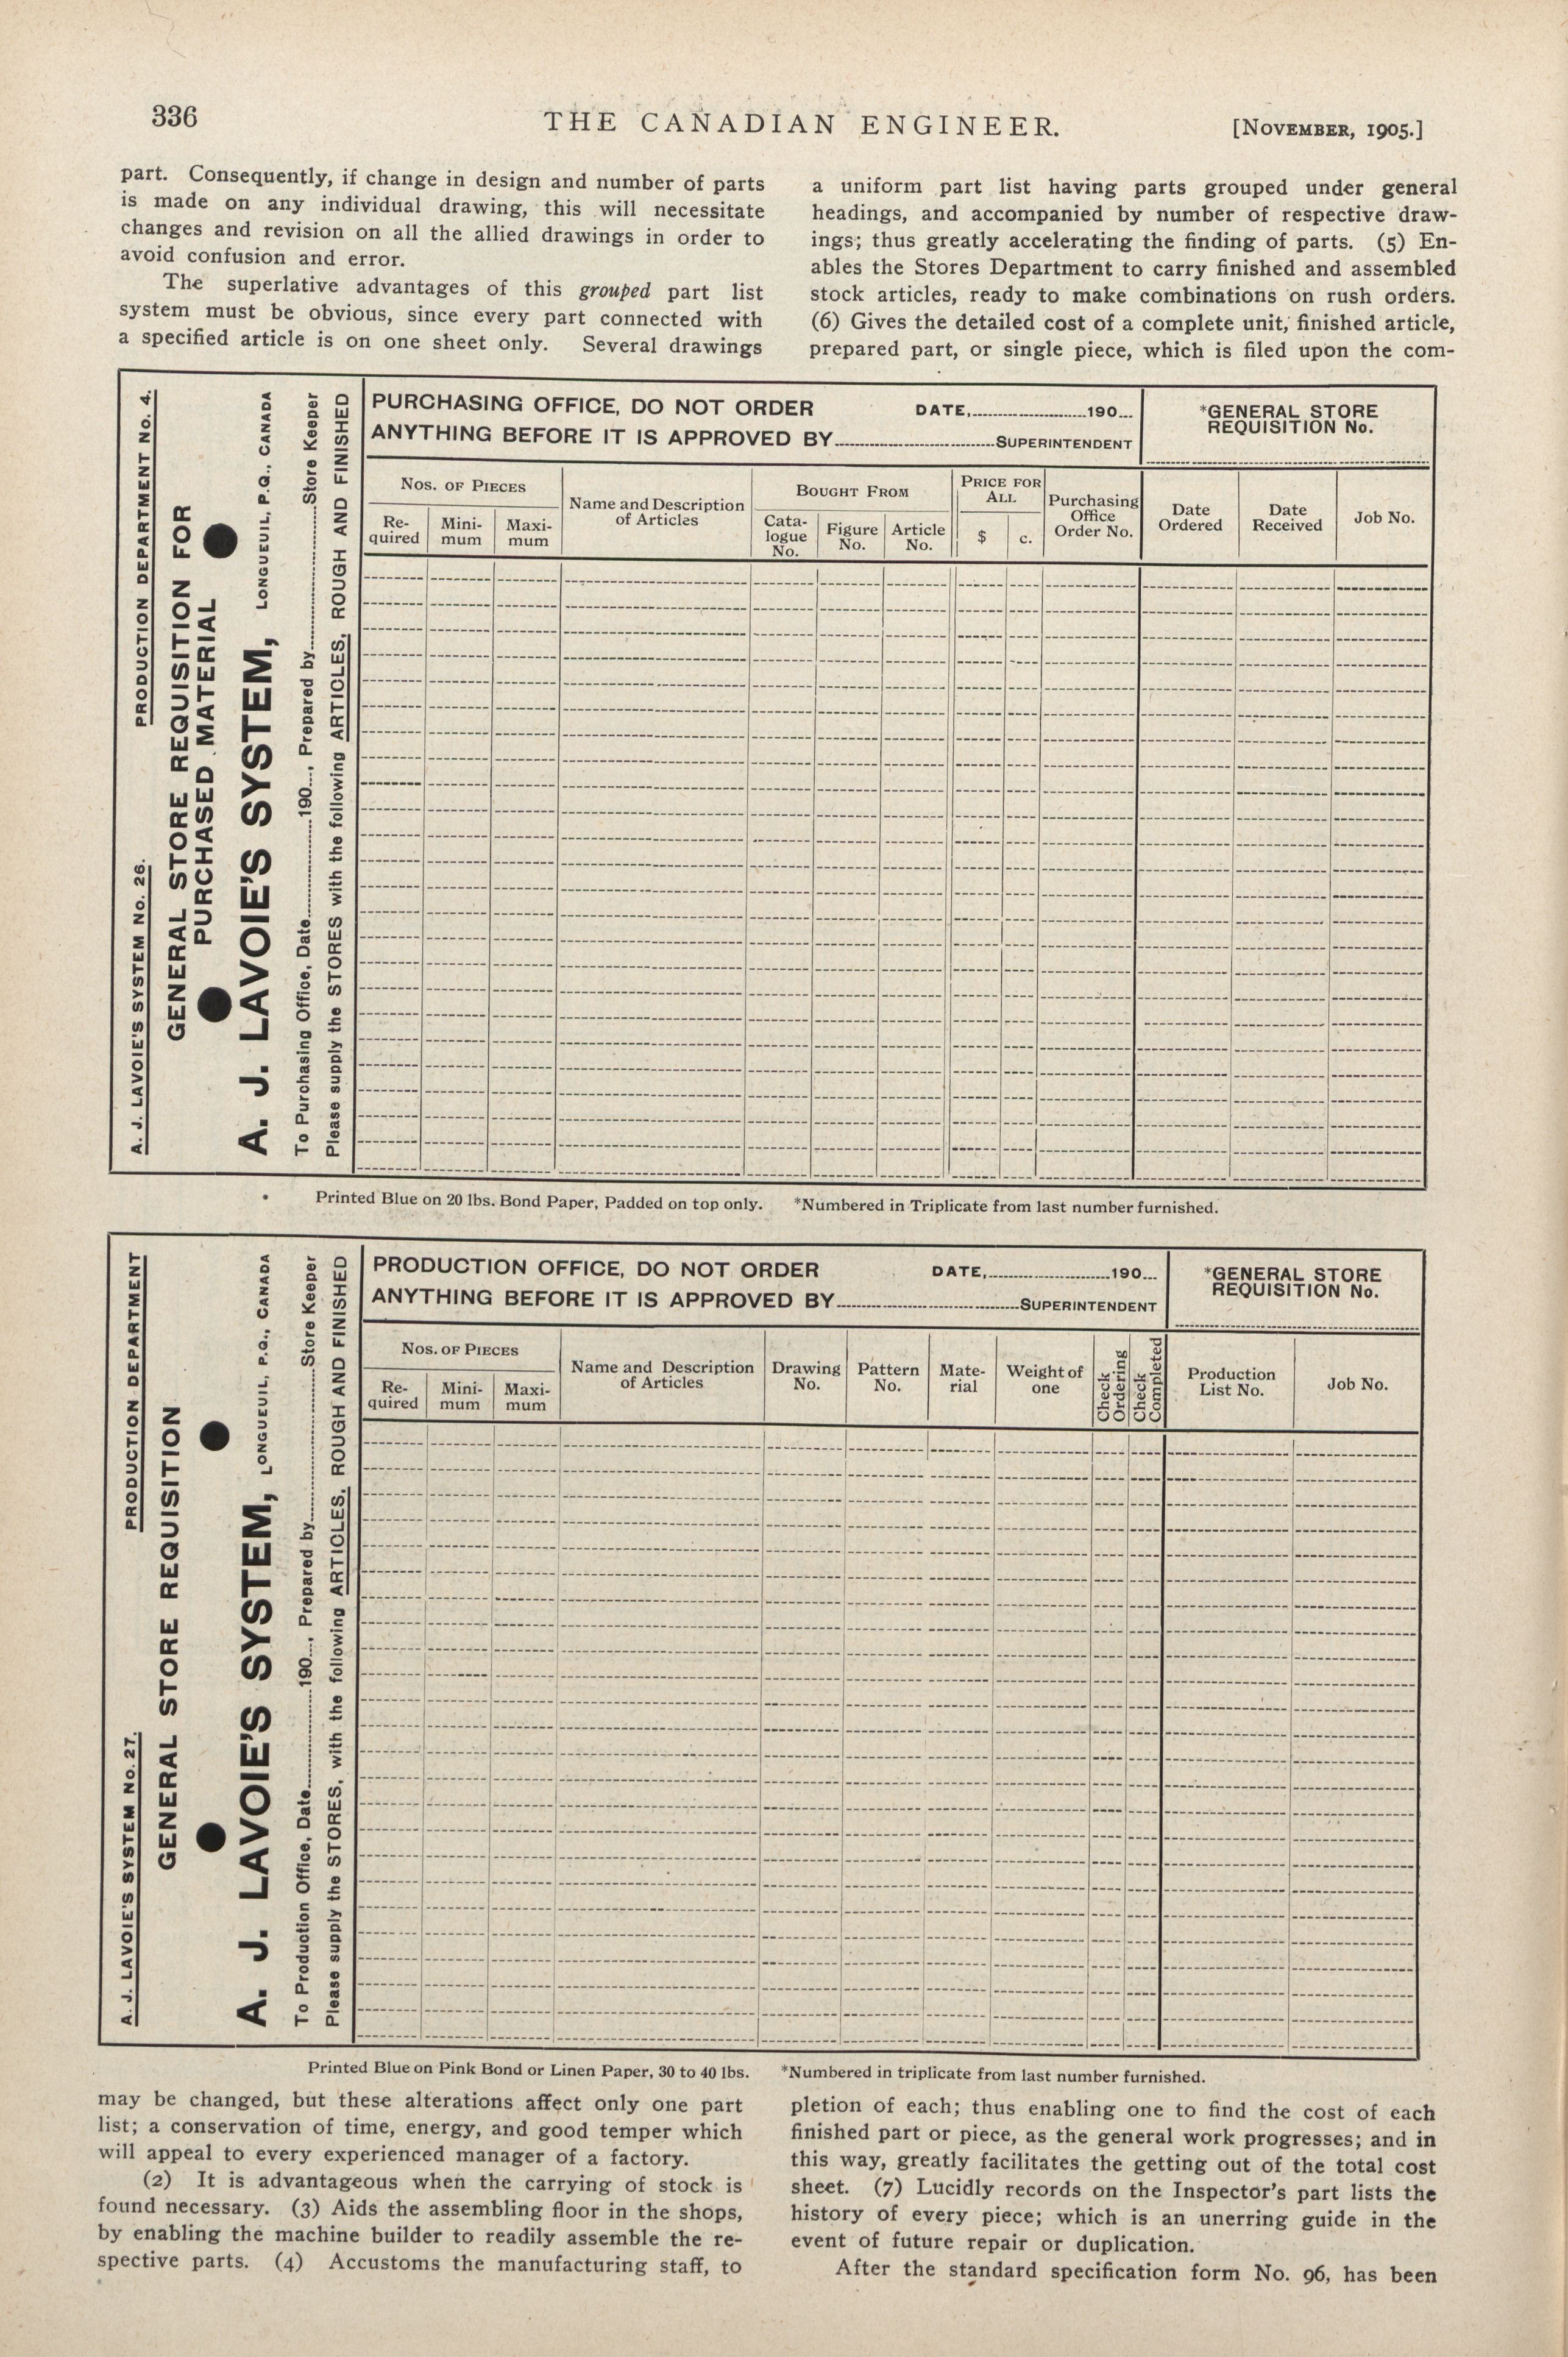 336
THE CANADIAN ENGINEER.
[NOVEMBER, 1905.]
part. Consequently, if change in design and number of parts
is made on any individual drawing, this will necessitate
changes and revision on all the allied drawings in order to
avoid confusion and error.
The superlative advantages of this grouped part list
system must be obvious, since every part connected with
a specified article is on one sheet only. Several drawings
a uniform part list having parts grouped under general
headings, and accompanied by number of respective draw-
ings; thus greatly accelerating the finding of parts. (5) En-
ables the Stores Department to carry finished and assembled
stock articles, ready to make combinations on rush orders.
(6) Gives the detailed cost of a complete unit, finished article,
prepared part, or single piece, which is filed upon the com-
A. J. LAVOIE'S SYSTEM No. 26. PRODUCTION DEPARTMENT No. 4.
GENERAL STORE REQUISITION FOR
PURCHASED MATERIAL
A. J. LAVOIE'S SYSTEM, LONGUEUIL, P.Q., CANADA
To Purchasing Office, Date..........190..., Prepared by..........Store Keeper
Please supply the STORES with the following ARTICLES, ROUGH AND FINISHED
PURCHASING OFFICE, DO NOT ORDER DATE,..........190...
ANYTHING BEFORE IT IS APPROVED BY..........SUPERINTENDENT
*GENERAL STORE
REQUISITION No.
NOS. OF PIECES
Re-
quired
Mini-
mum
Maxi-
mum
Name and Description
of Articles
BOUGHT FROM
Cata-
logue
No.
Figure
No.
Article
No.
PRICE FOR
ALL
$ c.
Purchasing
Office
Order No.
Date
Ordered
Date
Received
Job No.
Printed Blue on 20 lbs. Bond Paper, Padded on top only. *Numbered in Triplicate from last number furnished.
A. J. LAVOIE'S SYSTEM No. 27. PRODUCTION DEPARTMENT
GENERAL STORE REQUISITION
A. J. LAVOIE'S SYSTEM, LONGUEUIL, P.Q., CANADA
To Production Office, Date..........190..., Prepared by..........Store Keeper
Please supply the STORES, with the following ARTICLES, ROUGH AND FINISHED
PRODUCTION OFFICE, DO NOT ORDER DATE,..........190...
ANYTHING BEFORE IT IS APPROVED BY..........SUPERINTENDENT
*GENERAL STORE
REQUISITION No.
NOS. OF PIECES
Re-
quired
Mini-
mum
Maxi-
mum
Name and Description
of Articles
Drawing
No.
Pattern
No.
Mate-
rial
Weight of
one
Check
Ordering
Check
Completed
Production
List No.
Job No.
Printed Blue on Pink Bond or Linen Paper, 30 to 40 lbs. *Numbered in triplicate from last number furnished.
may be changed, but these alterations affect only one part
list; a conservation of time, energy, and good temper which
will appeal to every experienced manager of a factory.
(2) It is advantageous when the carrying of stock is
found necessary. (3) Aids the assembling floor in the shops,
by enabling the machine builder to readily assemble the re-
spective parts. (4) Accustoms the manufacturing staff, to
pletion of each; thus enabling one to find the cost of each
finished part or piece, as the general work progresses; and in
this way, greatly facilitates the getting out of the total cost
sheet. (7) Lucidly records on the Inspector's part lists the
history of every piece; which is an unerring guide in the
event of future repair or duplication.
After the standard specification form No. 96, has been